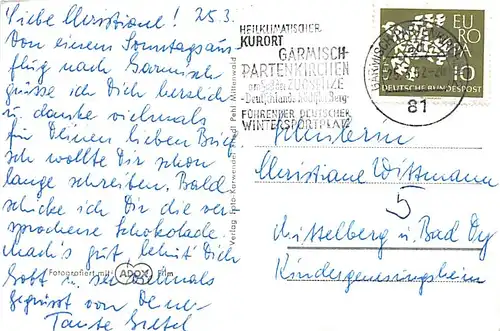 Liebe Christiane! 25.3.
Von einem Sonntagsaus-
flug nach Garmisch
grüsse ich Dich herzlich
u. danke vielmals
für Deinen lieben Brief
ich wollte Dir schon
lange schreiben. Bald
schicke ich Dir die ver-
sprochene Schokolade.
Mach's gut, behüt' Dich
Gott u. sei vielmals
gegrüsst von Deiner
Tante Gretel
Fotografiert mit ADOX Film
Verlag Foto-Karwendel Pehl Mittenwald
HEILKLIMATISCHER
KURORT
GARMISCH-
PARTENKIRCHEN
am Fuße der ZUGSPITZE
-Deutschlands höchster Berg-
FÜHRENDER DEUTSCHER
WINTERSPORTPLATZ
GARMISCH-PARTENKIRCHEN
81
EUROPA
10
DEUTSCHE BUNDESPOST
Christiane Wittmann
5
Mittelberg
Kindergenesungsheim